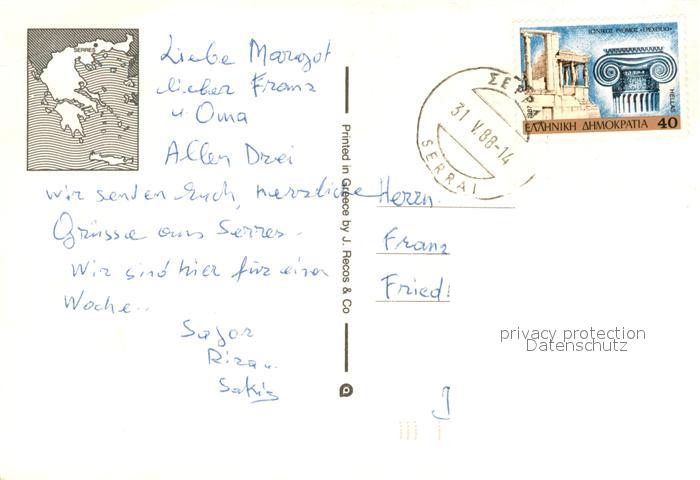 SERRES
Liebe Margot
lieber Franz
u. Oma
Allen Drei
wir senden Euch, herzliche
Grüsse aus Serres.
Wir sind hier für einen
Woche..
Sakis
Printed in Greece by J. Recos & Co
ΙΩΝΙΚΟΣ ΡΥΘΜΟΣ «ΕΡΕΧΘΕΙΟ»
HELLAS
ΕΛΛΗΝΙΚΗ ΔΗΜΟΚΡΑΤΙΑ 40
31 V.88-14
SERRAI
Herrn
Franz
Friedl
privacy protection
Datenschutz